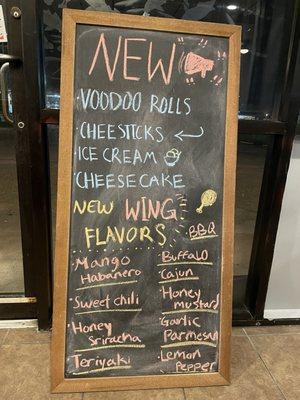 NEW
· VOODOO ROLLS
· CHEESTICKS
· ICE CREAM
· CHEESECAKE
NEW WING
FLAVORS
· BBQ
· Mango
Habanero
· Sweet chili
· Honey
Sriracha
· Teriyaki
· Buffalo
· Cajun
· Honey
mustard
· Garlic
Parmesan
· Lemon
Pepper